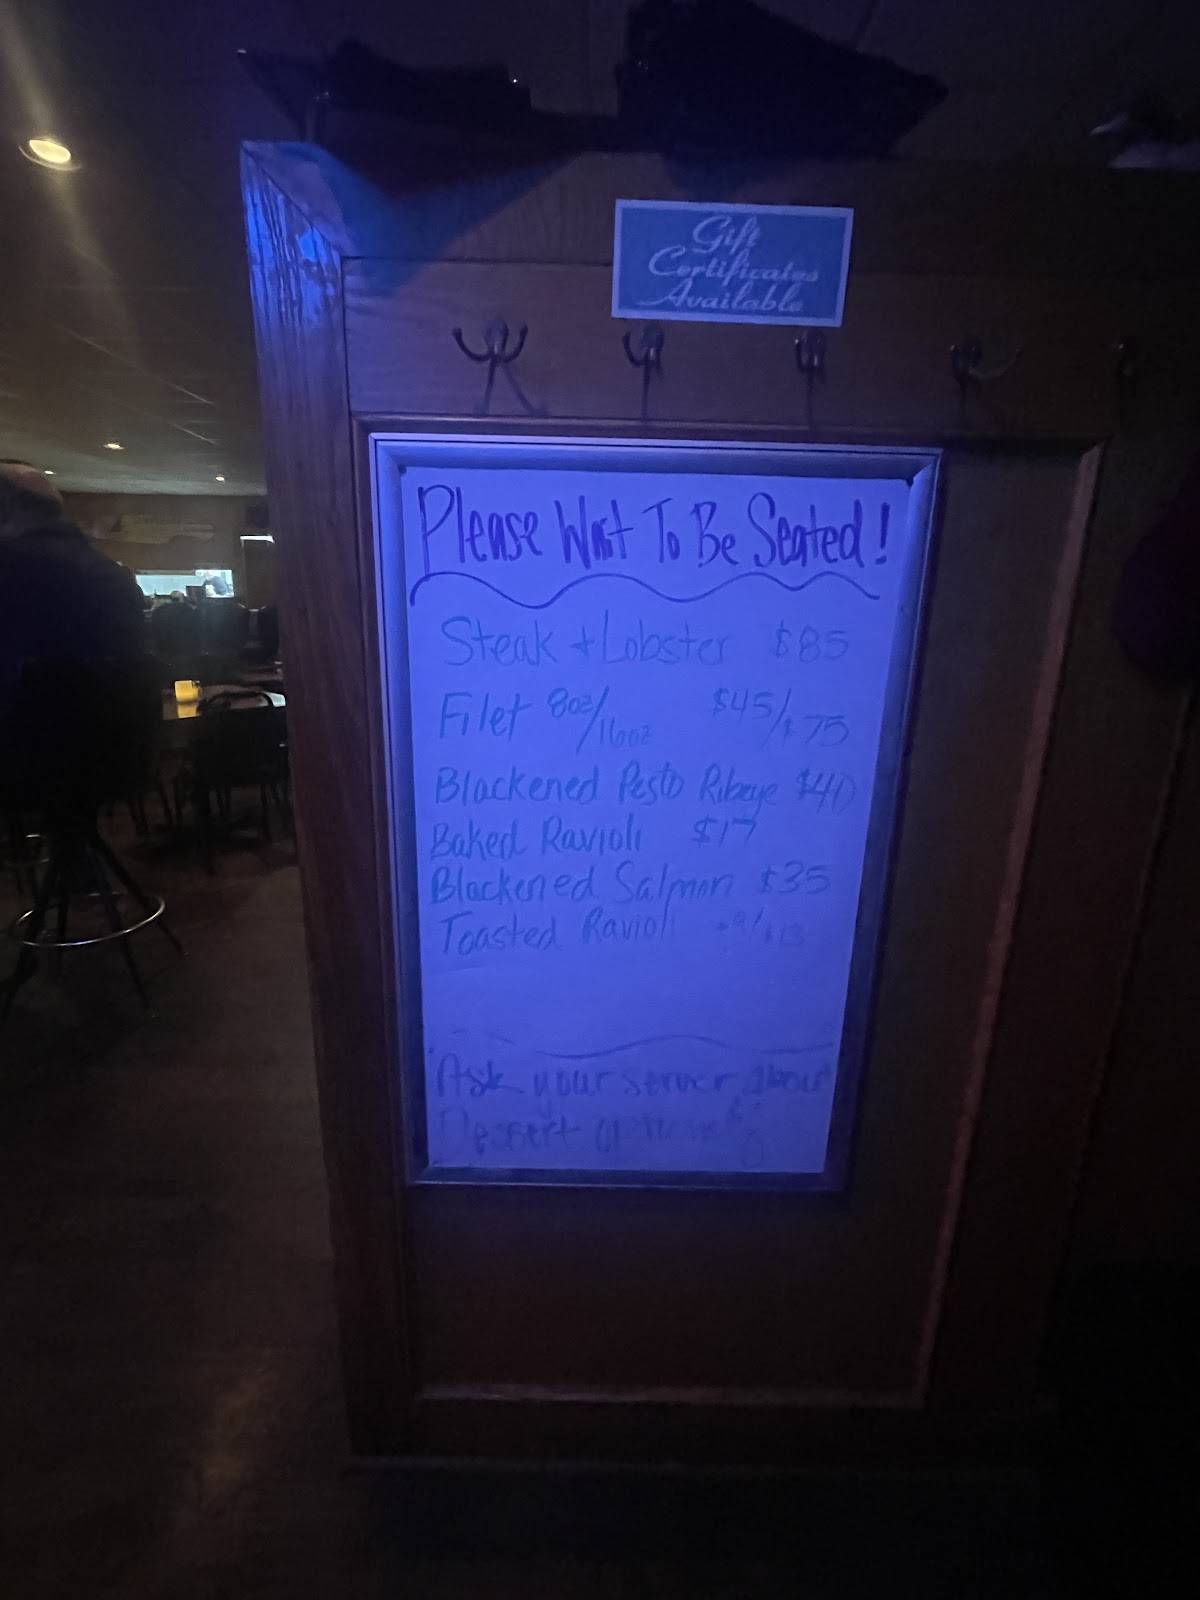 Gift
Certificates
Available
Please Wait To Be Seated!
Steak + Lobster $85
Filet 8oz/16oz $45/$75
Blackened Pesto Ribeye $40
Baked Ravioli $17
Blackened Salmon $35
Toasted Ravioli $9/$13
Ask your server about
Dessert options